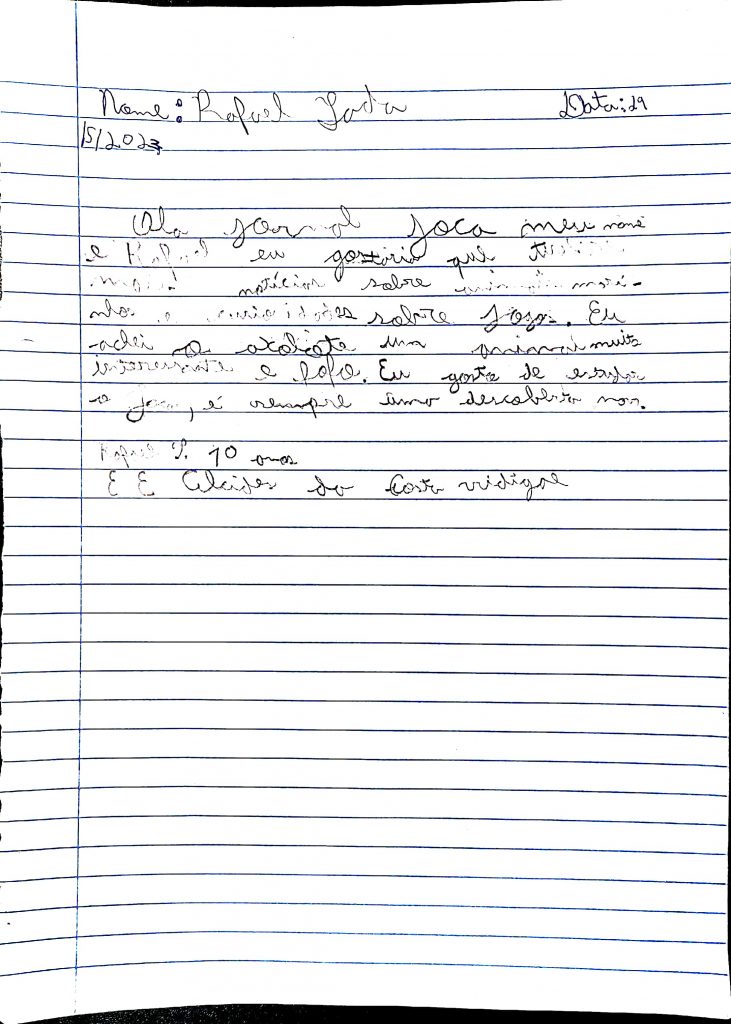 Nome: Rafael Data: 29
/5/2023
Ola Jornal Joca meu nome
e Rafael eu gostaria que
noticias sobre mari-
nhos e curiosidades sobre jogos. Eu
achei o axolote um animal muito
interessante e fofo. Eu gosto de
o Joca, e sempre amo descobertas
Rafael 10 anos
E E Alcides da Costa vidigal